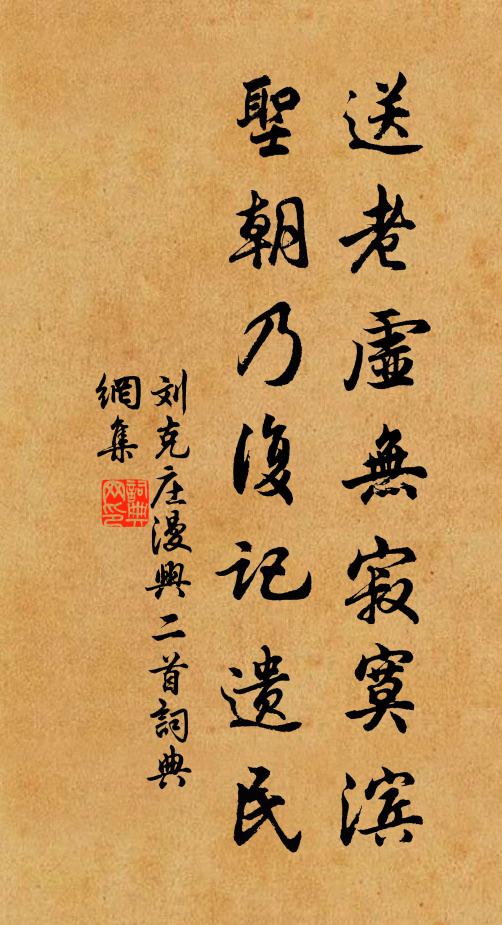 送老虛無寂寞滨
聖朝乃復记遗民
刘克庄漫興二首詞典
網集
詞典網印